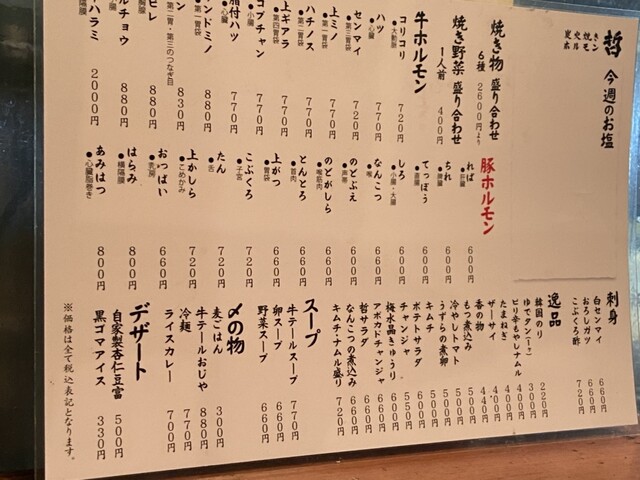 哲
今週のお塩
焼き物 盛り合わせ
6種 2600円より
焼き野菜 盛り合わせ
1人前 400円
牛ホルモン
コリコリ
●大動脈 720円
ハツ
●心臓 770円
センマイ
●第三胃袋 720円
上ミノ
●第一胃袋 770円
ハチノス
●第二胃袋 770円
上ギアラ
●第四胃袋 770円
コプチャン
●小腸 770円
脂付ハツ
●心臓 770円
880円
830円
880円
ルチョウ 880円
ハラミ 2000円
豚ホルモン
れば
●肝臓 600円
ちれ
●脾臓 600円
てっぽう
●直腸 600円
しろ
●小腸・大腸 600円
なんこつ
●喉 660円
のどぶえ
●声帯 600円
のどがしら
●喉筋肉 660円
とんとろ
●首肉 660円
上がつ
●胃袋 660円
こぶくろ
●子宮 720円
たん
●舌 720円
上かしら
●こめかみ 720円
おっぱい
●乳房 660円
はらみ
●横隔膜 800円
あみはつ
●心臓脂巻き 800円
刺身
白センマイ 660円
おろしガツ 660円
こぶくろ酢 720円
逸品
韓国のり 220円
ゆでタン(1ヶ) 300円
ピリ辛もやしナムル 400円
たまねぎ 400円
ザーサイ 400円
香の物 440円
もつ煮込み 500円
冷やしトマト 500円
うずらの煮卵 500円
キムチ 500円
ポテトサラダ 550円
チャンジャ 550円
梅水晶きゅうり 600円
アボカドチャンジャ 660円
哲サラダ 660円
なんこつの煮込み 660円
キムチ・ナムル盛り 720円
スープ
牛テールスープ 770円
卵スープ 660円
野菜スープ 660円
〆の物
麦ごはん 300円
牛テールおじや 880円
冷麺 770円
ライスカレー 700円
デザート
自家製杏仁豆富 500円
黒ゴマアイス 330円
※価格は全て税込表記となります。